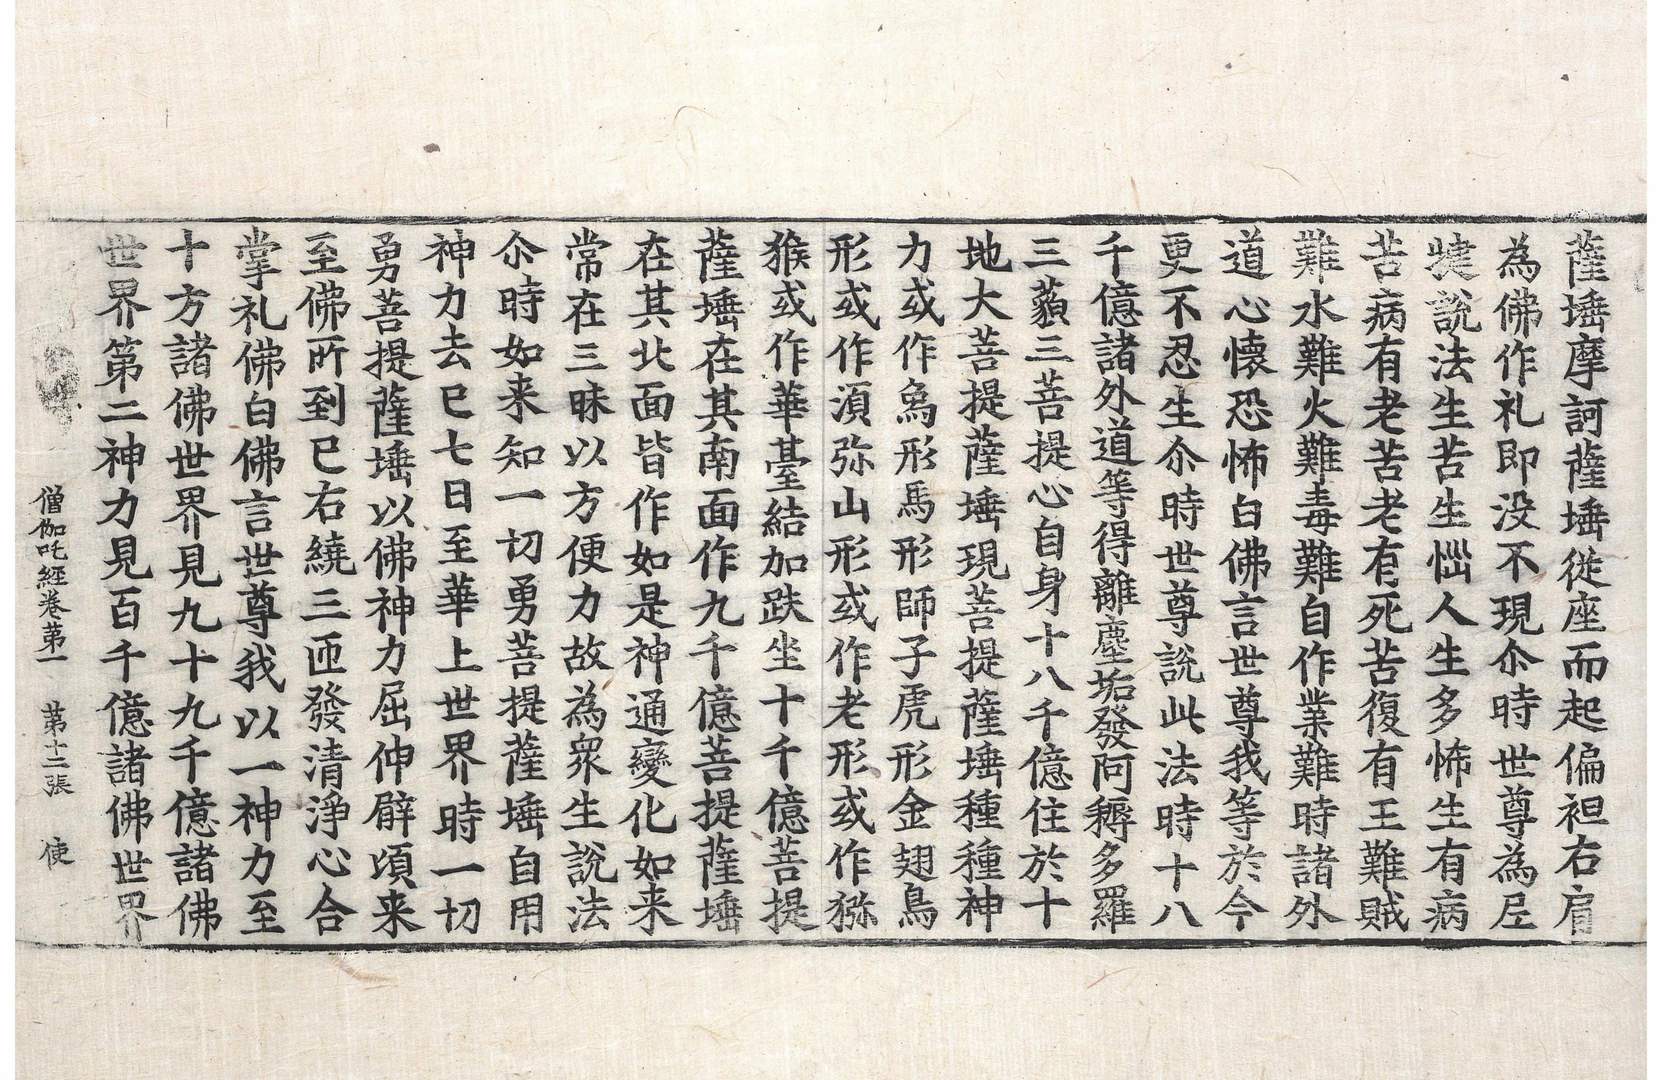 薩埵摩訶薩埵従座而起偏袒右肩
為佛作礼即没不現尒時世尊為尼
揵說法生苦生惱人生多怖生有病
苦病有老苦老有死苦復有王難賊
難水難火難毒難自作業難時諸外
道心懷恐怖白佛言世尊我等於今
更不忍生尒時世尊說此法時十八
千億諸外道等得離塵垢發阿耨多羅
三藐三菩提心自身十八千億住於十
地大菩提薩埵現菩提薩埵種種神
力或作為形馬形師子虎形金翅鳥
形或作湏弥山形或作老形或作猕
猴或作華臺結加趺坐十千億菩提
薩埵在其南面作九千億菩提薩埵
在其北面皆作如是神通變化如来
常在三昧以方便力故為衆生說法
尒時如来知一切勇菩提薩埵自用
神力去已七日至華上世界時一切
勇菩提薩埵以佛神力屈伸臂頃来
至佛所到已右繞三匝發清淨心合
掌礼佛白佛言世尊我以一神力至
十方諸佛世界見九十九千億諸佛
世界第二神力見百千億諸佛世界
僧伽吒經卷第一 第十二張 使